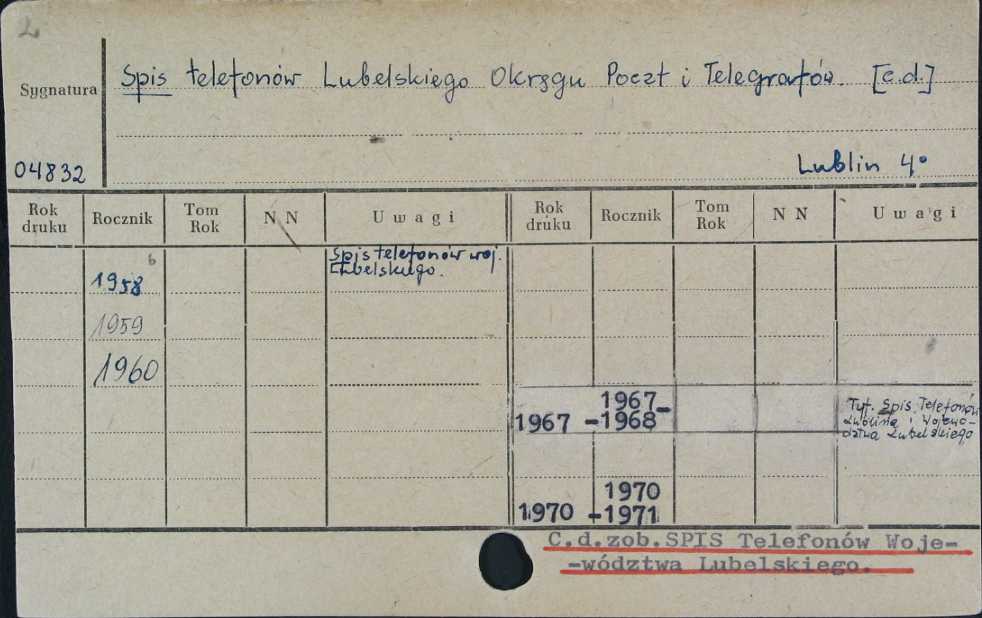 2
Sygnatura
Spis telefonów Lubelskiego Okręgu Poczt i Telegrafów. [c.d.]
04832
Lublin 4°
Rok druku Rocznik Tom Rok N N Uwagi Rok druku Rocznik Tom Rok N N Uwagi
6
1958 Spis telefonów woj. Lubelskiego.
1959
1960
1967 - 1967-1968 Tyt. Spis Telefonów Lublina i Wojewo-dztwa Lubelskiego
1970 - 1970 1971
C.d.zob.SPIS Telefonów Woje-
-wództwa Lubelskiego.